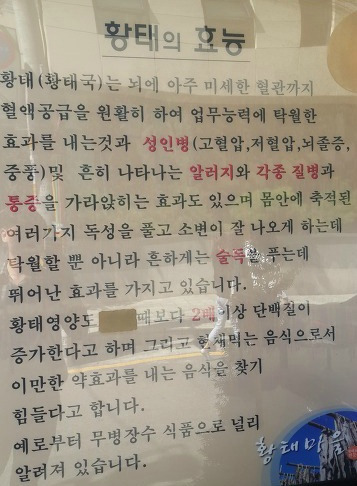 황태의 효능
황태(황태국)는 뇌에 아주 미세한 혈관까지
혈액공급을 원활히 하여 업무능력에 탁월한
효과를 내는것과 성인병(고혈압,저혈압,뇌졸증,
중풍)및 흔히 나타나는 알러지와 각종 질병과
통증을 가라앉히는 효과도 있으며 몸안에 축적된
여러가지 독성을 풀고 소변이 잘 나오게 하는데
탁월할 뿐 아니라 흔하게는 술독을 푸는데
뛰어난 효과를 가지고 있습니다.
황태영양도 때보다 2배이상 단백질이
증가한다고 하며 그리고 먹는 음식으로서
이만한 약효과를 내는 음식을 찾기
힘들다고 합니다.
예로부터 무병장수 식품으로 널리
알려져 있습니다.
황태마을